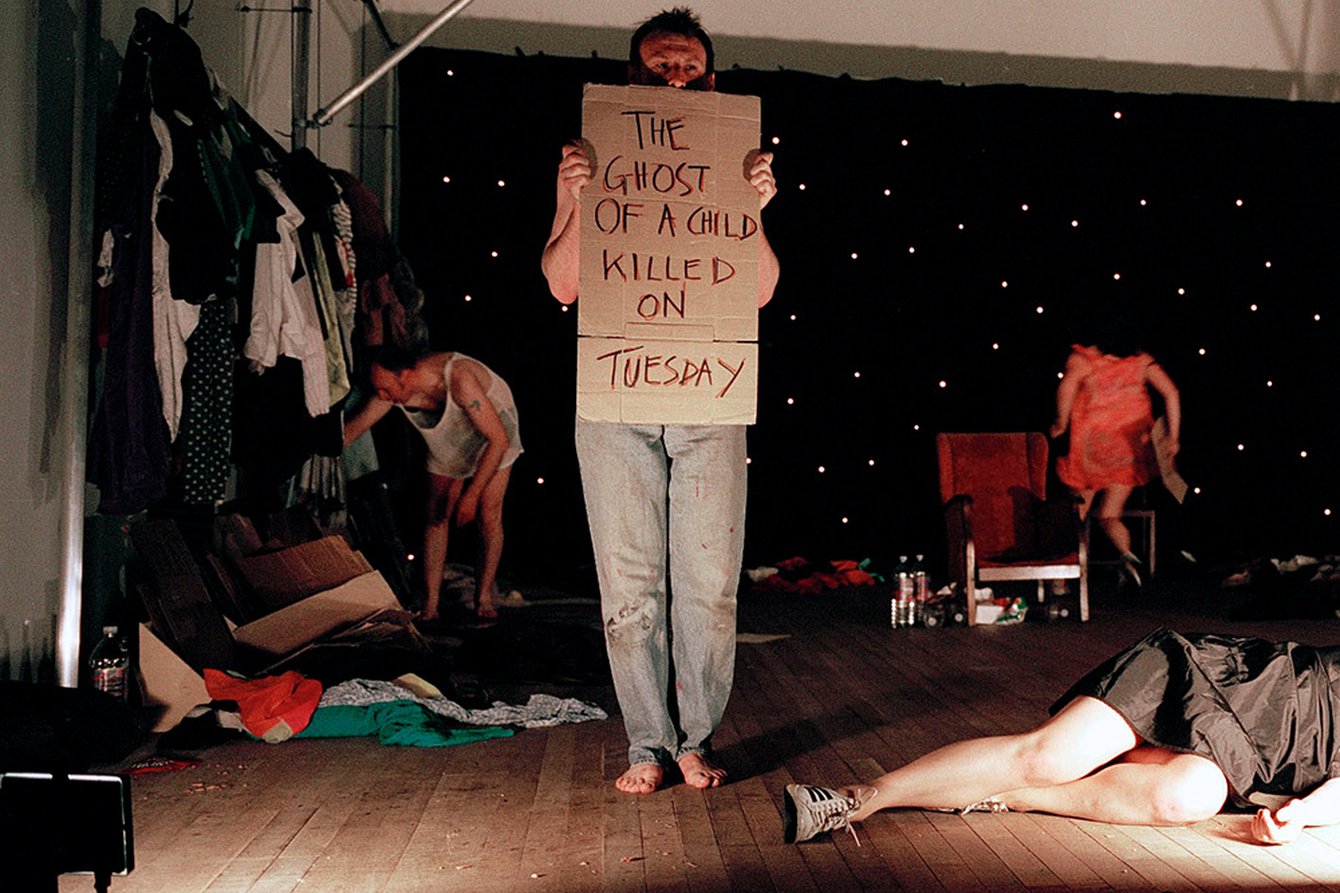 THE
GHOST
OF A CHILD
KILLED
ON
TUESDAY